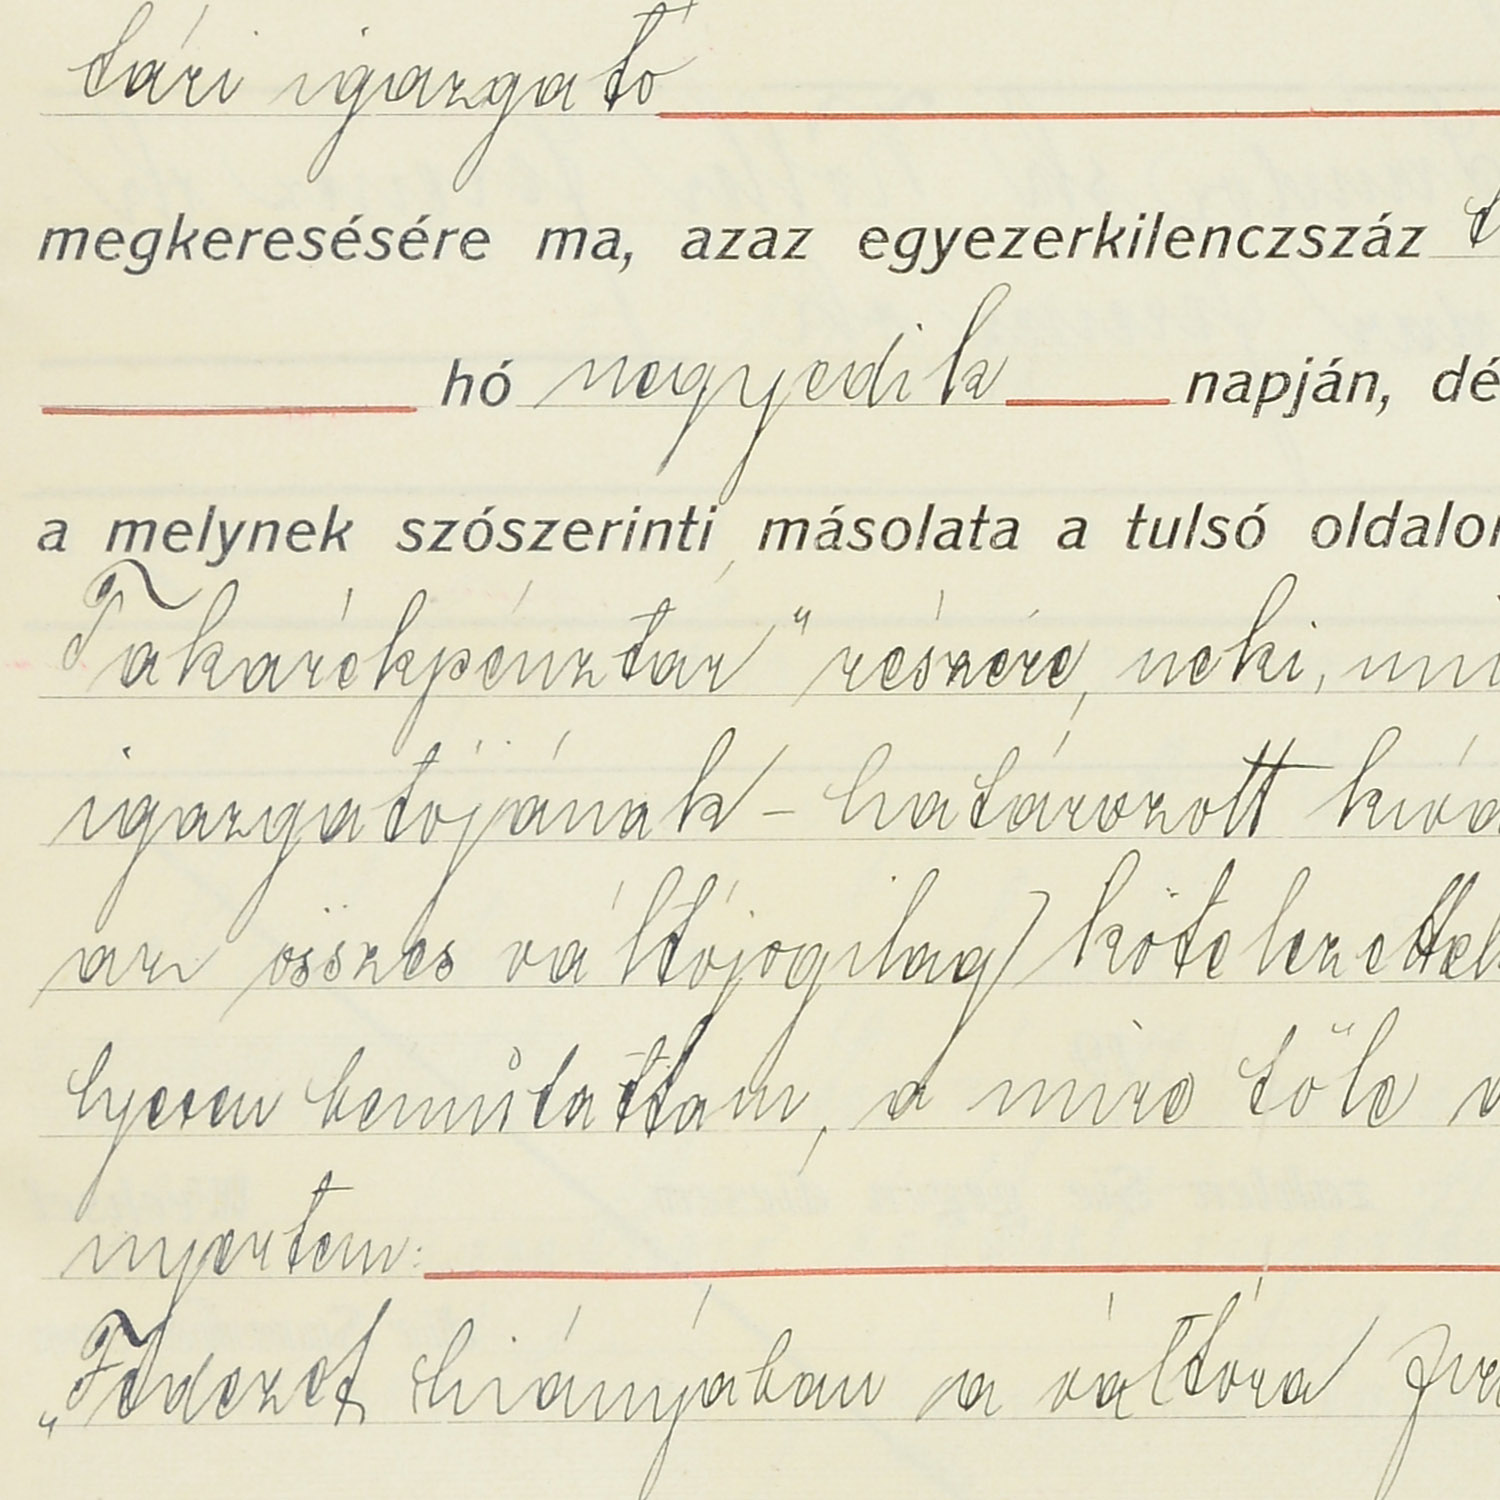 tári igazgató
megkeresésére ma, azaz egyezerkilenczszáz
hó negyedik napján, dé
a melynek szószerinti másolata a tulsó oldalon
Takarékpénztár" részére, neki, mi
igazgatójának - határozott kiód
az összes váltójogilag kötelezettek
lyesen bemútattam, a mire tőle v
nyertem:
„Fedezet hiányában a váltóra